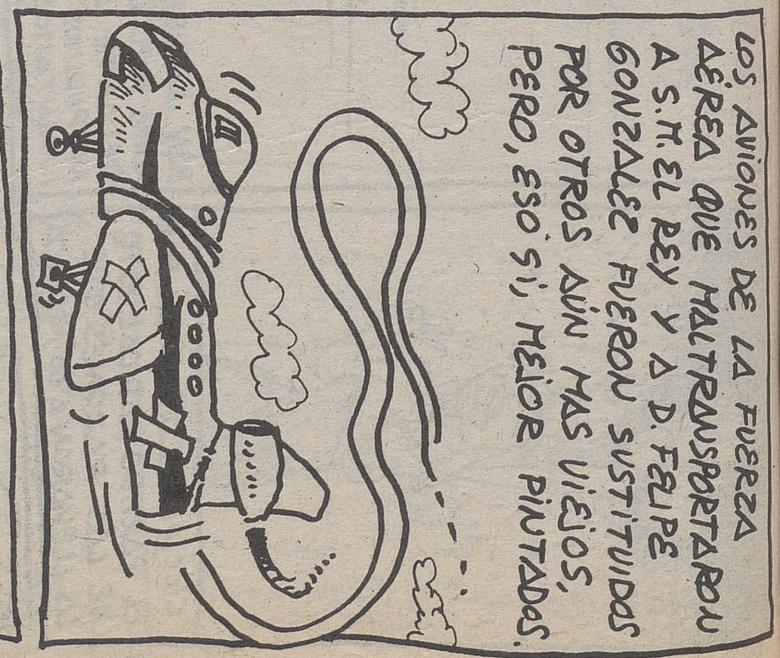 LOS AVIONES DE LA FUERZA
AÉREA QUE MALTRANSPORTARON
A S.M. EL REY Y A D. FELIPE
GONZALEZ FUERON SUSTITUIDOS
POR OTROS AÚN MAS VIEJOS,
PERO, ESO SÍ, MEJOR PINTADOS.